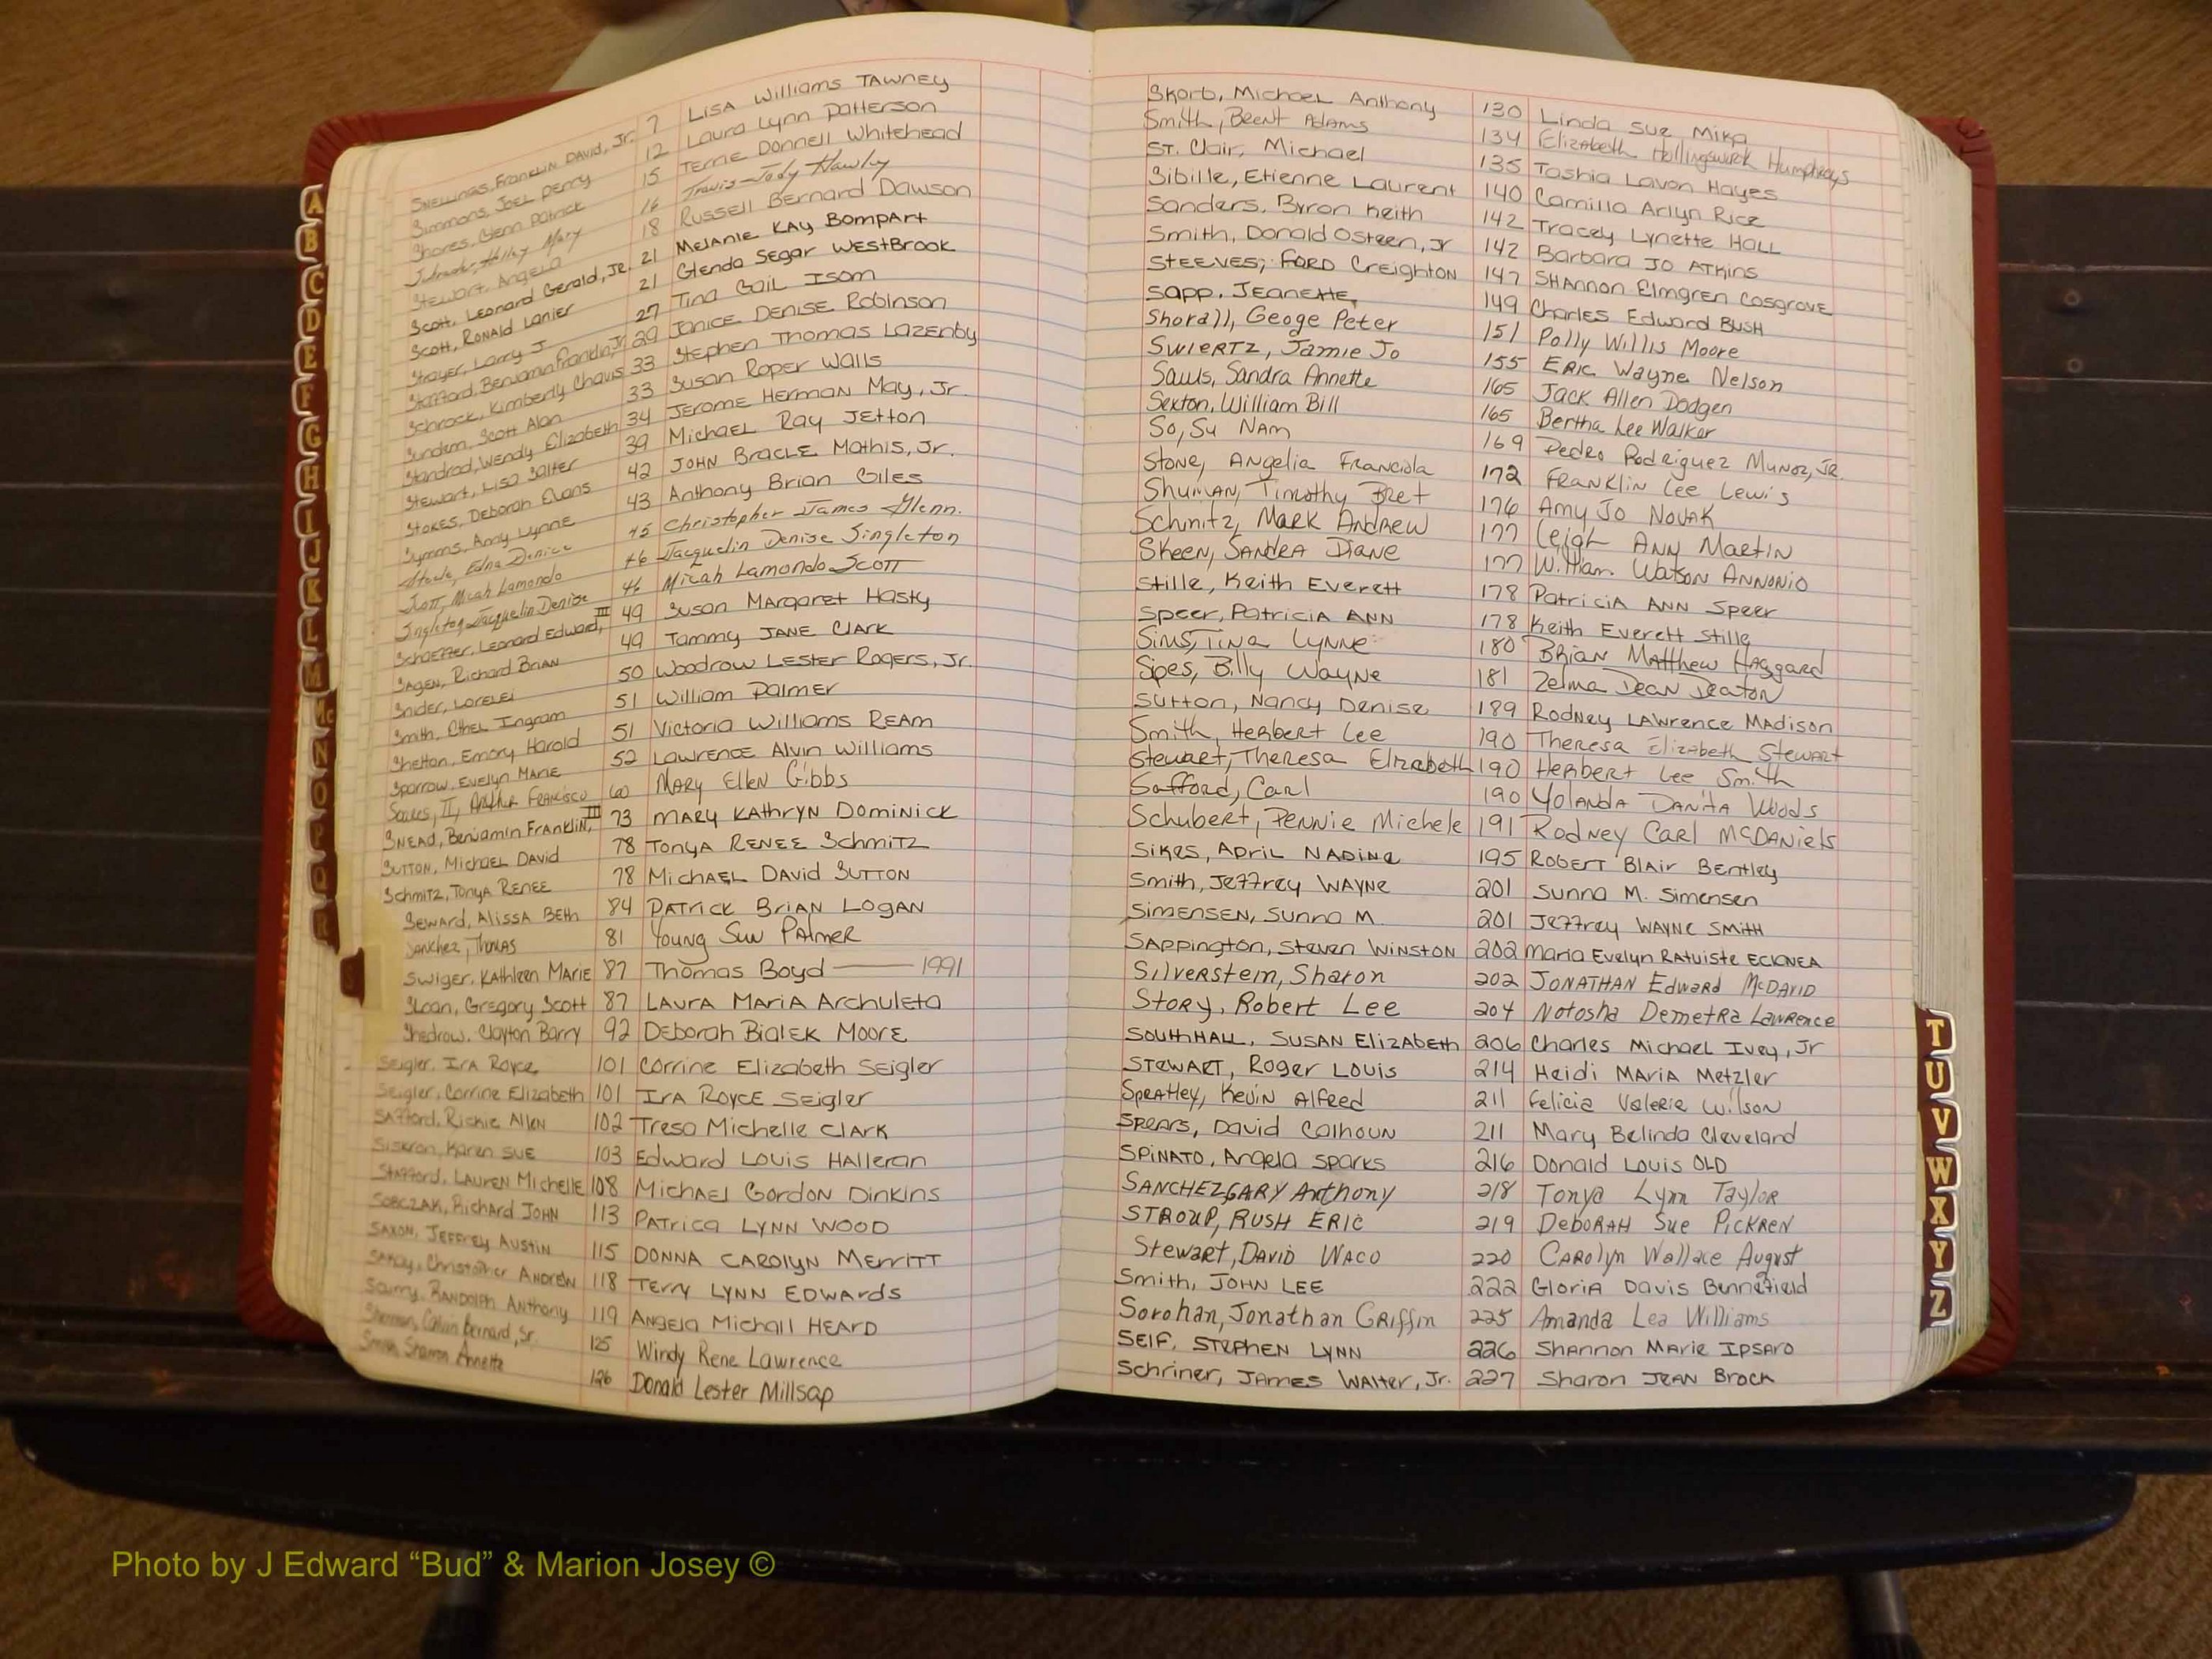 Snellings, Franklin David, Jr. 7 Lisa Williams TAWNEY
Simmons, Joel Perry 12 Laura Lynn Patterson
Shores, Glenn Patrick 15 Terrie Donnell Whitehead
Hiley Mary 16 Travis Jody Hawley
Stewart, Angela 18 Russell Bernard Dawson
Scott, Leonard Gerald, Jr. 21 Melanie Kay Bompart
Scott, Ronald Lanier 21 Glenda Segar Westbrook
Strayer, Larry J. 27 Tina Gail Isom
Stafford, Benjamin Franklin, Jr. 29 Janice Denise Robinson
Schrock, Kimberly Chavis 33 Stephen Thomas Lazenby
Sundem, Scott Alan 33 Susan Roper Walls
Standrod, Wendy Elizabeth 34 Jerome Herman May, Jr.
Stewart, Lisa Salter 39 Michael Ray Jetton
Stokes, Deborah Evans 42 John Bracle Mathis, Jr.
Symms, Amy Lynne 43 Anthony Brian Giles
Steele, Edna Denice 45 Christopher James Glenn.
Scott, Micah Lamondo 46 Jacquelin Denise Singleton
Singleton, Jacquelin Denise 46 Micah Lamondo Scott
Schaeffer, Leonard Edward, III 49 Susan Margaret Hasty
Sagen, Richard Brian 49 Tammy Jane Clark
Snider, Lorelei 50 Woodrow Lester Rogers, Jr.
Smith, Ethel Ingram 51 William Palmer
Shelton, Emory Harold 51 Victoria Williams Ream
Sparrow, Evelyn Marie 52 Lawrence Alvin Williams
Soares, II, Arthur Francisco 60 Mary Ellen Gibbs
Snead, Benjamin Franklin, III 73 Mary Kathryn Dominick
Sutton, Michael David 78 Tonya Renee Schmitz
Schmitz, Tonya Renee 78 Michael David Sutton
Seward, Alissa Beth 84 Patrick Brian Logan
Sanchez, Thomas 81 Young Sun Palmer
Swiger, Kathleen Marie 87 Thomas Boyd —— 1991
Sloan, Gregory Scott 87 Laura Maria Archuleta
Shedrow, Clayton Barry 92 Deborah Bialek Moore
Seigler, Ira Royce 101 Corrine Elizabeth Seigler
Seigler, Corrine Elizabeth 101 Ira Royce Seigler
Safford, Rickie Allen 102 Tresa Michelle Clark
Siskron, Karen Sue 103 Edward Louis Halleran
Stafford, Lauren Michelle 108 Michael Gordon Dinkins
Sobczak, Richard John 113 Patrica Lynn Wood
Saxon, Jeffrey Austin 115 Donna Carolyn Merritt
Christopher Andrew 118 Terry Lynn Edwards
Scurry, Randolph Anthony 119 Angela Michall Heard
Calvin Bernard, Sr. 125 Windy Rene Lawrence
Smith, Sharon Annette 126 Donald Lester Millsap
Skorb, Michael Anthony 130 Linda Sue Mika
Smith, Brent Adams 134 Elizabeth Hollingswork Humphreys
St. Clair, Michael 135 Tashia Lavon Hayes
Sibille, Etienne Laurent 140 Camilla Arlyn Rice
Sanders, Byron Keith 142 Tracey Lynette Hall
Smith, Donald Osteen, Jr 142 Barbara Jo Atkins
Steeves, Ford Creighton 147 Shannon Elmgren Cosgrove
Sapp, Jeanette, 149 Charles Edward Bush
Shorall, Geoge Peter 151 Polly Willis Moore
Swiertz, Jamie Jo 155 Eric Wayne Nelson
Sauls, Sandra Annette 165 Jack Allen Dodgen
Sexton, William Bill 165 Bertha Lee Walker
So, Su Nam 169 Pedro Rodriguez Munoz, Jr.
Stone, Angelia Franciola 172 Franklin Lee Lewis
Shuman, Timothy Bret 176 Amy Jo Novak
Schmitz, Mark Andrew 177 Leigh Ann Martin
Skeen, Sandra Diane 177 William Watson Annonio
Stille, Keith Everett 178 Patricia Ann Speer
Speer, Patricia Ann 178 Keith Everett Stille
Sims, Tina Lynne 180 Brian Matthew Haggard
Sipes, Billy Wayne 181 Zelma Dean Deaton
Sutton, Nancy Denise 189 Rodney Lawrence Madison
Smith, Herbert Lee 190 Theresa Elizabeth Stewart
Stewart, Theresa Elizabeth 190 Herbert Lee Smith
Safford, Carl 190 Yolanda Danita Woods
Schubert, Pennie Michele 191 Rodney Carl McDaniels
Sikes, April Nadine 195 Robert Blair Bentley
Smith, Jeffrey Wayne 201 Sunna M. Simensen
Simensen, Sunna M. 201 Jeffrey Wayne Smith
Sappington, Steven Winston 202 Maria Evelyn Ratuiste Eclonea
Silverstein, Sharon 202 Jonathan Edward McDavid
Story, Robert Lee 204 Notosha Demetra Lawrence
Southhall, Susan Elizabeth 206 Charles Michael Ivey, Jr
Stewart, Roger Louis 214 Heidi Maria Metzler
Spratley, Kevin Alfred 211 Felicia Valerie Wilson
Spears, David Calhoun 211 Mary Belinda Cleveland
Spinato, Angela Sparks 216 Donald Louis Old
Sanchez, Gary Anthony 218 Tonya Lynn Taylor
Stroup, Rush Eric 219 Deborah Sue Pickren
Stewart, David Waco 220 Carolyn Wallace August
Smith, John Lee 222 Gloria Davis Bennefield
Sorohan, Jonathan Griffin 225 Amanda Lea Williams
Self, Stephen Lynn 226 Shannon Marie Ipsaro
Schriner, James Walter, Jr. 227 Sharon Jean Brock
A
B
C
D
E
F
G
H
I
J
K
L
M
Mc
N
O
P
Q
R
S
T
U
V
W
X
Y
Z
Photo by J Edward “Bud” & Marion Josey ©